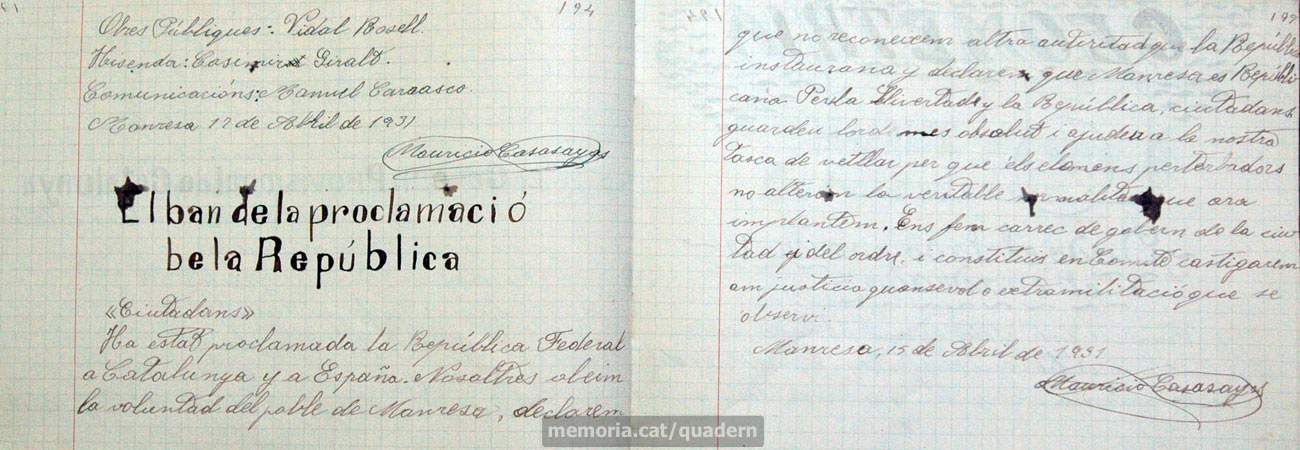 194
Obres Públiques: Vidal Rosell.
Hisenda: Casimiro Giralt.
Comunicacións: Manuel Carrasco.
Manresa 17 de Abril de 1931
Mauricio Casasayas
El ban de la proclamació
be la República
«Ciutadans»
Ha estat proclamada la República Federal
a Catalunya y a España. Nosaltres obeim
la voluntad del poble de Manresa, declarem
que no reconeixem altra autoritad que la República
instaurana y declarem que Manresa es Republi
cana Per la Llivertad y la República, ciutadans
guardeu lorde mes absolut i ajudeu a la nostra
tasca de vetllar per que els elemens perturbadors
no alterin la veritable que ara
implantem. Ens fem carrec de gobern de la ciu
tad y del ordre, i constituis en Comité castigarem
am justicia quansevol extramilitació que se
observi.
Manresa, 15 de Abril de 1931
Mauricio Casasayas
memoria.cat/quadern